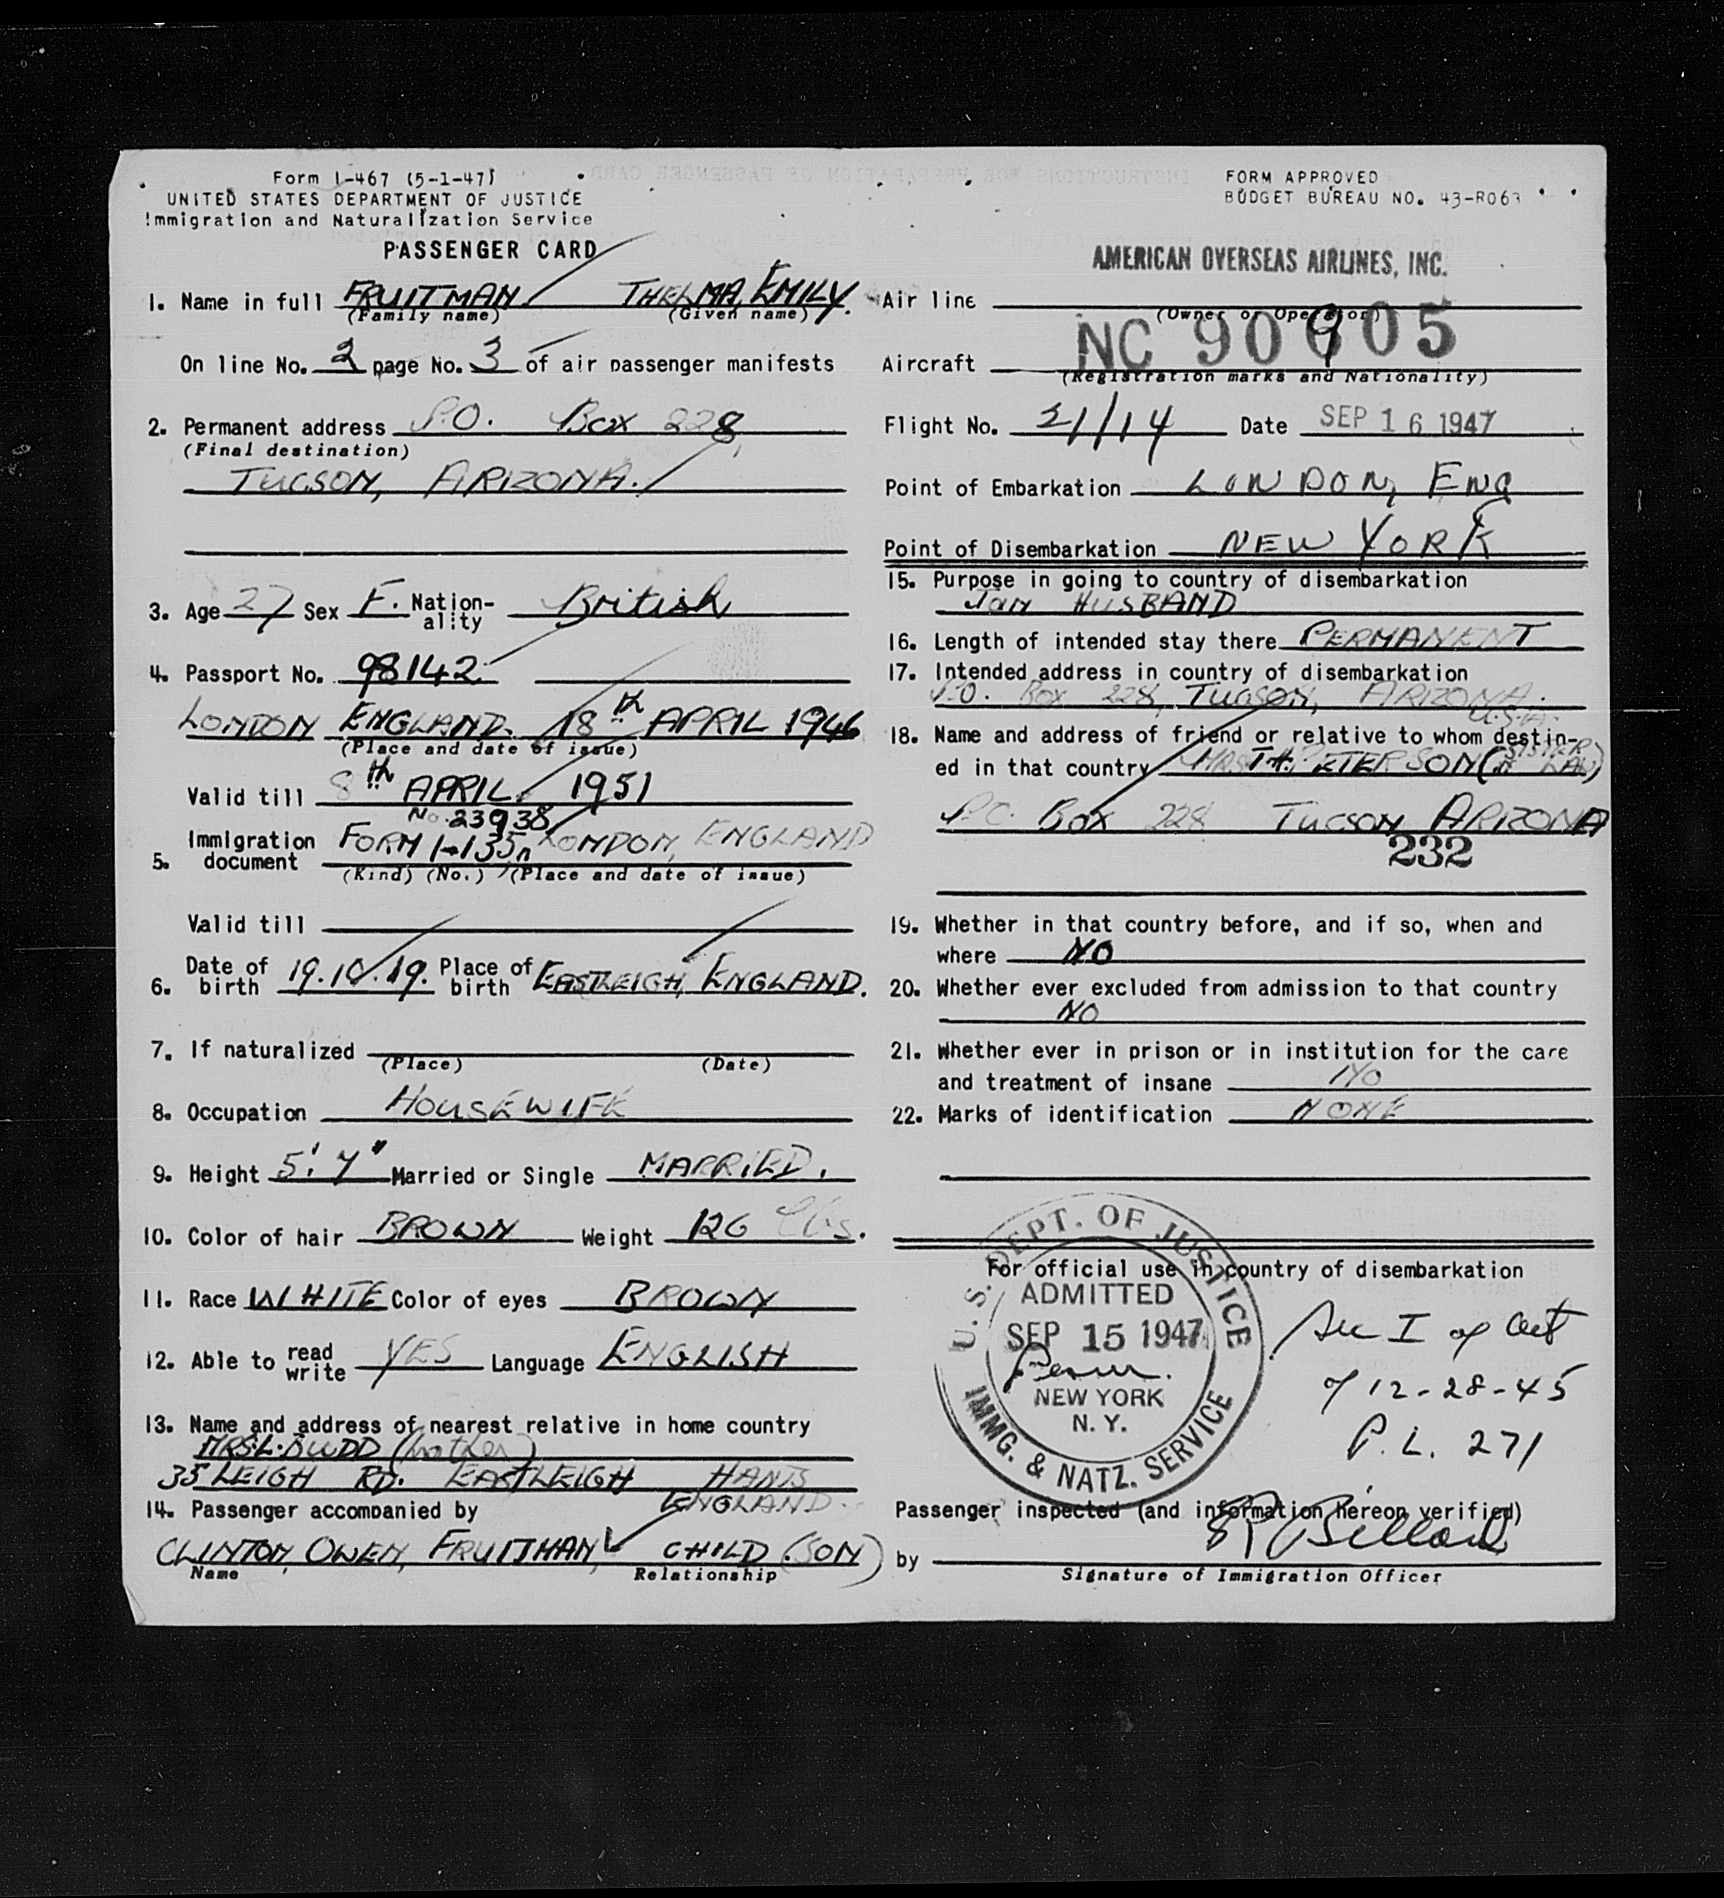 Form I-467 (5-1-47)
UNITED STATES DEPARTMENT OF JUSTICE
Immigration and Naturalization Service
PASSENGER CARD
1. Name in full FRUITMAN THELMA, EMILY.
(Family name) (Given name)
On line No. 2 page No. 3 of air passenger manifests
2. Permanent address P.O. Box 228,
(Final destination)
TUCSON, ARIZONA.
3. Age 27 Sex F. Nation-ality British
4. Passport No. 98142.
LONDON ENGLAND. 18th APRIL 1946
(Place and date of issue)
Valid till 8th APRIL. 1951
No. 23938
5. Immigration document FORM I-135n LONDON, ENGLAND
(Kind) (No.) (Place and date of issue)
Valid till
6. Date of birth 19.10.19. Place of birth EASTLEIGH, ENGLAND.
7. If naturalized
(Place) (Date)
8. Occupation HOUSEWIFE
9. Height 5'.7" Married or Single MARRIED.
10. Color of hair BROWN Weight 126 lbs.
11. Race WHITE Color of eyes BROWN
12. Able to read write YES Language ENGLISH
13. Name and address of nearest relative in home country
MRS.L.BUDD (mother)
35 LEIGH RD. EASTLEIGH HANTS
ENGLAND.
14. Passenger accompanied by
CLINTON, OWEN, FRUITMAN, CHILD (SON)
Name Relationship
FORM APPROVED
BUDGET BUREAU NO. 43-R063
AMERICAN OVERSEAS AIRLINES, INC.
Air line
(Owner or Operator)
Aircraft NC 90905
(Registration marks and Nationality)
Flight No. 21/14 Date SEP 16 1947
Point of Embarkation LONDON, ENG
Point of Disembarkation NEW YORK
15. Purpose in going to country of disembarkation
Join HUSBAND
16. Length of intended stay there PERMANENT
17. Intended address in country of disembarkation
P.O. Box 228, TUCSON, ARIZONA.
U.S.A.
18. Name and address of friend or relative to whom destin-
ed in that country MRS. T.H. PETERSON (SISTER IN LAW)
P.O. Box 228 TUCSON ARIZONA
232
19. Whether in that country before, and if so, when and
where NO
20. Whether ever excluded from admission to that country
NO
21. Whether ever in prison or in institution for the care
and treatment of insane NO
22. Marks of identification NONE
For official use in country of disembarkation
U.S. DEPT. OF JUSTICE
ADMITTED
SEP 15 1947
Perm.
NEW YORK
N. Y.
IMMG. & NATZ. SERVICE
Sec I of Act
of 12-28-45
P.L. 271
Passenger inspected (and information hereon verified)
by
Signature of Immigration Officer